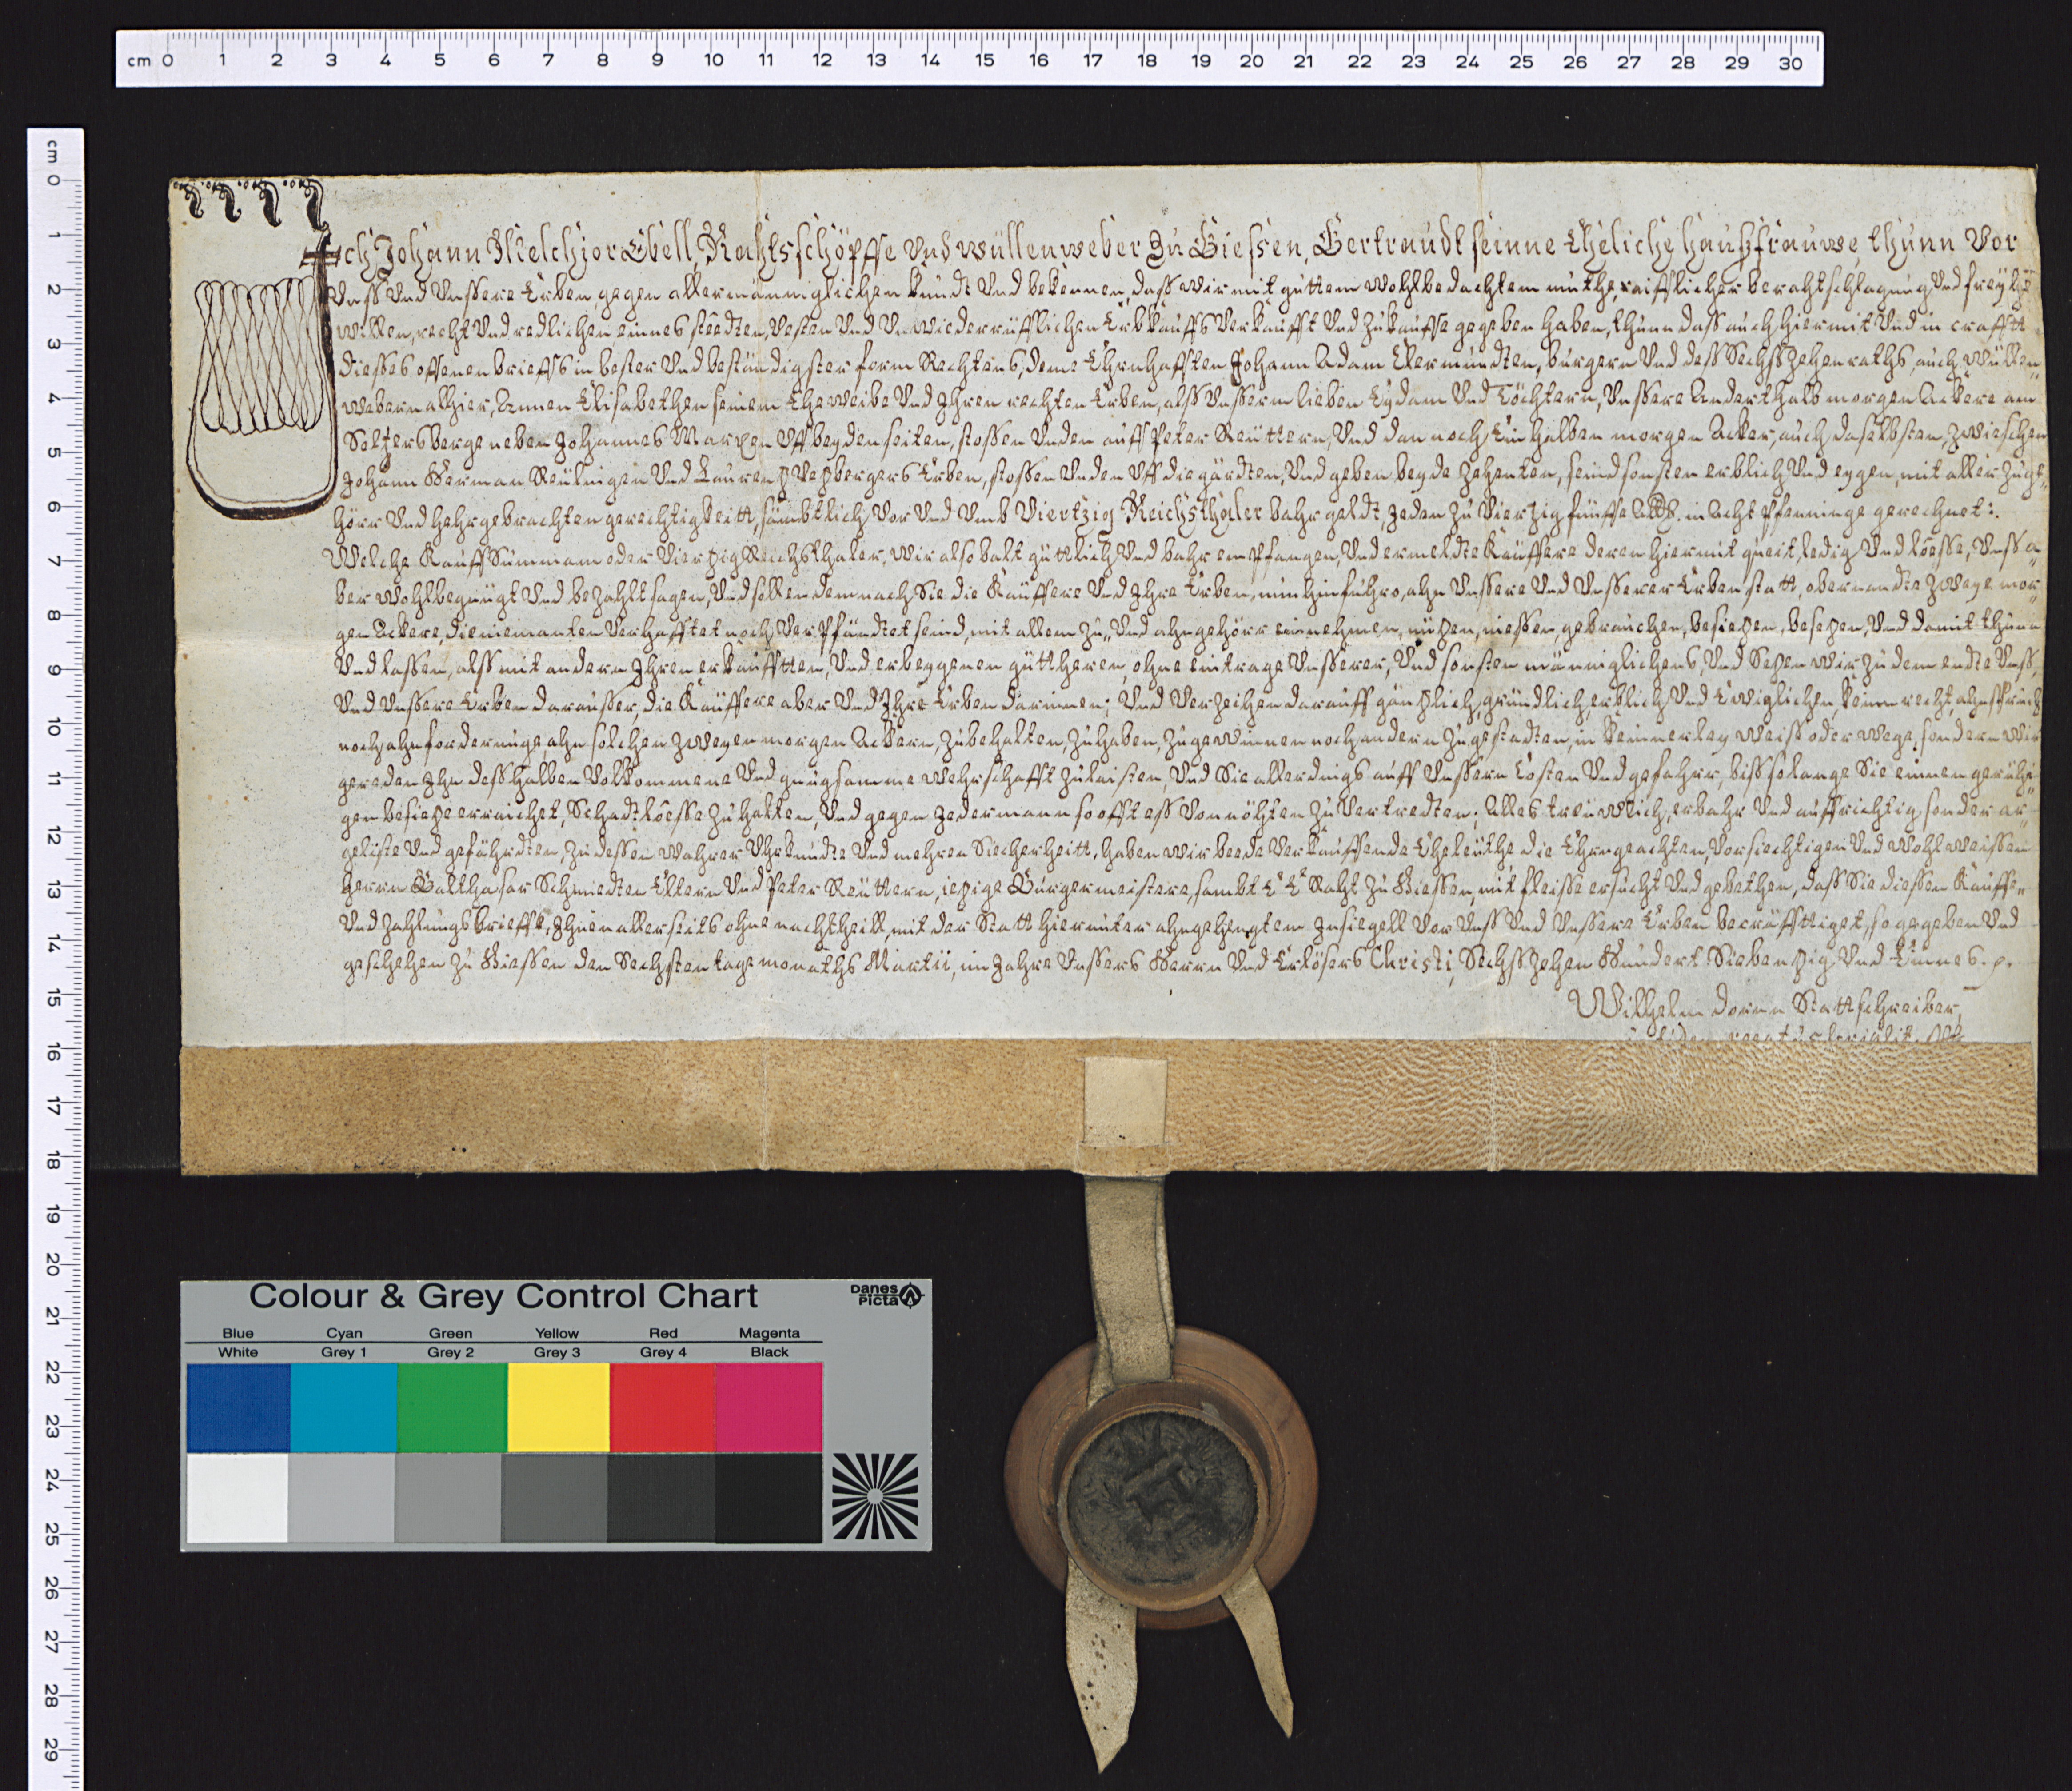 cm 0 1 2 3 4 5 6 7 8 9 10 11 12 13 14 15 16 17 18 19 20 21 22 23 24 25 26 27 28 29 30
cm 0 1 2 3 4 5 6 7 8 9 10 11 12 13 14 15 16 17 18 19 20 21 22 23 24 25 26 27 28 29
Ich Johann Melchior Ebell, Rahtsschöpffe Und wüllenweber Zu Giessen, Gertraudt seinne Eheliche haußfrauwe, thunn Vor
Unß Und Unssere Erben, gegen allermänniglichen kundt Und bekennen, daß wir mit guttem wohlbedachtem muthe, raifflicher berahtschlagung Und freyhē
willen, recht Und redlichen, eines steedten, Vesten Und Unwiederrüfflichen Erbkauffs Verkaufft Und Zukauffe gegeben haben, thunn daß auch hiermit Und in crafftt
diesses offenen brieffs in bester Und beständigster form Rechtens, deme Ehrnhafften Johann Adam Elermundten, burgern Und deß Sechßzehenraths, auch wüllen„
webern alhier, Annen Elisabethen seinem Eheweibe Und Ihren rechten Erben, alß Unsserm lieben Eydam Und Töchtern, Unssere Anderthalb morgen Ackers am
Seltzersberge neben Johannes Marxen Uff beyden seiten, stossen Unden auff Peter Reuttern, Und dan noch Ein halben morgen Acker, auch daselbsten, Zwieschen
Johann Herman Reulnigen Und Laurentz Utzbergers Erben, stossen Unden Uff die gärdten, Und geben beyde zehenten, seind sonsten erblich Und eygen, mit aller Zuge„
hörr Und hehrgebrachten gerechtigkeitt, sämbtlich Vor Und Umb Viertzig Reichsthaler bahr geldt, Jeden zu Vierzig fünffe Alb. in Acht Pfenninge gerechnet:.
Welche Kauff Summam oder Viertzig Reichsthaler, wir also balt güttlich Und bahr empfangen, Und ermeldte Käuffere deren hiermit queit, ledig Und loesse, Unß a„
ber wohlbegnügt Und bezahlt sagen, Und sollen demnach Sie die Käuffere Und Ihre Erben, nunhinfuhro, ahn Unssere Und Unsserer Erben statt, obernandte Zweye mor„
gen Ackers, die niemanten Verhafftet noch Verpfändtet seind, mit allem Zu„ Und ahngehörr einnehmen, nützen, niessen, gebrauchen, besietzen, besetzen, Und damit thunn
Und lassen, alß mit andern Ihren erkaufftten, Und erbeygenen güttheren, ohne eintrage Unsserer, Und sonsten männiglichens, Und Setzen wir zu dem endte Unß,
Und Unssere Erben darausser, die Käuffere aber Und Ihre Erben darinnen; Und Verzeihen darauff gäntzlich, gründlich, erblich Und Ewiglichen, keinn recht ahnspruch
noch ahnforderunge ahn solchen zweyen morgen Ackern, Zubehalten, Zuhaben, Zugewinnen noch andern Zugestadten, in keinnerley weiß oder wege, sondern wir
gereden Ihn deßhalben Vollkommene Und gnugsamme wehrschafft zulaisten, Und Sie allerdings auff Unssern Costen Und gefahrr, biß solange Sie einnen gerühi„
gen besietz erraichet, Schadtloesse zuhalten, Und gegen Jederman so offt eß Vonnöhten zu Vertredten; Alles treuwlich, erbahr Und auffrichtig, sonder ar„
geliste Und gefährdten, Zu dessen wahrer Uhrkundte Und mehren Siecherheitt, haben wir beede Verkauffende Eheleuthe die Ehrngeachten, Vorsiechtigen Und wohlweissen
Herrn Balthasar Schmiedten Eltern Und Peter Reuttern, ietzige Burgermeistere, sambt E. E. Raht zu Giessen, mit fleisse ersucht Und gebethen, daß Sie diessen Kauff„
Und zahlungsbrieffe, Ihnen allerseits ohne nachtheill, mit der Statt hierunter ahngehengtem Insiegell Vor Unß Und Unssere Erben becräfftiget, so gegeben Und
geschehen zu Giessen den Sechsten tage monaths Martii, im Jahre Unssers Herrn Und Erlösers Christi, Sechßzehen Hundert Siebentzig Und Einnes.
Wilhelm Dorn Stattschreiber
Colour & Grey Control Chart
Danes Picta
Blue Cyan Green Yellow Red Magenta
White Grey 1 Grey 2 Grey 3 Grey 4 Black